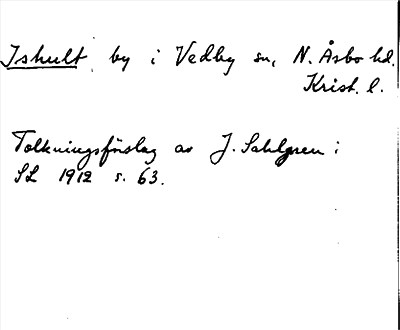 Ishult, by i Vedby sn, N. Åsbo hd.
Krist. l.
Tolkningsförslag av J. Sahlgren i
SL 1912 s. 63.